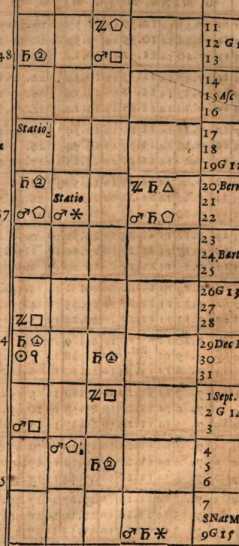 ♃ ⬠ 11
12 G
48 ♄ ② ♂ □ 13
14
15 Asc
16
Statio 17
18
19 G 12
♄ ② ♃ ♄ △ 20 Bern
Statio 21
♂ ⬠ ♂ ✱ ♂ ♄ ⬠ 22
23
24 Bart
25
26 G 13
27
♃ □ 28
4 ♄ ④ 29 Dec
☉ ♀ ♄ ④ 30
31
♃ □ 1 Sept.
2 G 14
♂ □ 3
♂ ⬠ 4
♄ ② 5
6
7
8 Nat M
♂ ♄ ✱ 9 G 15